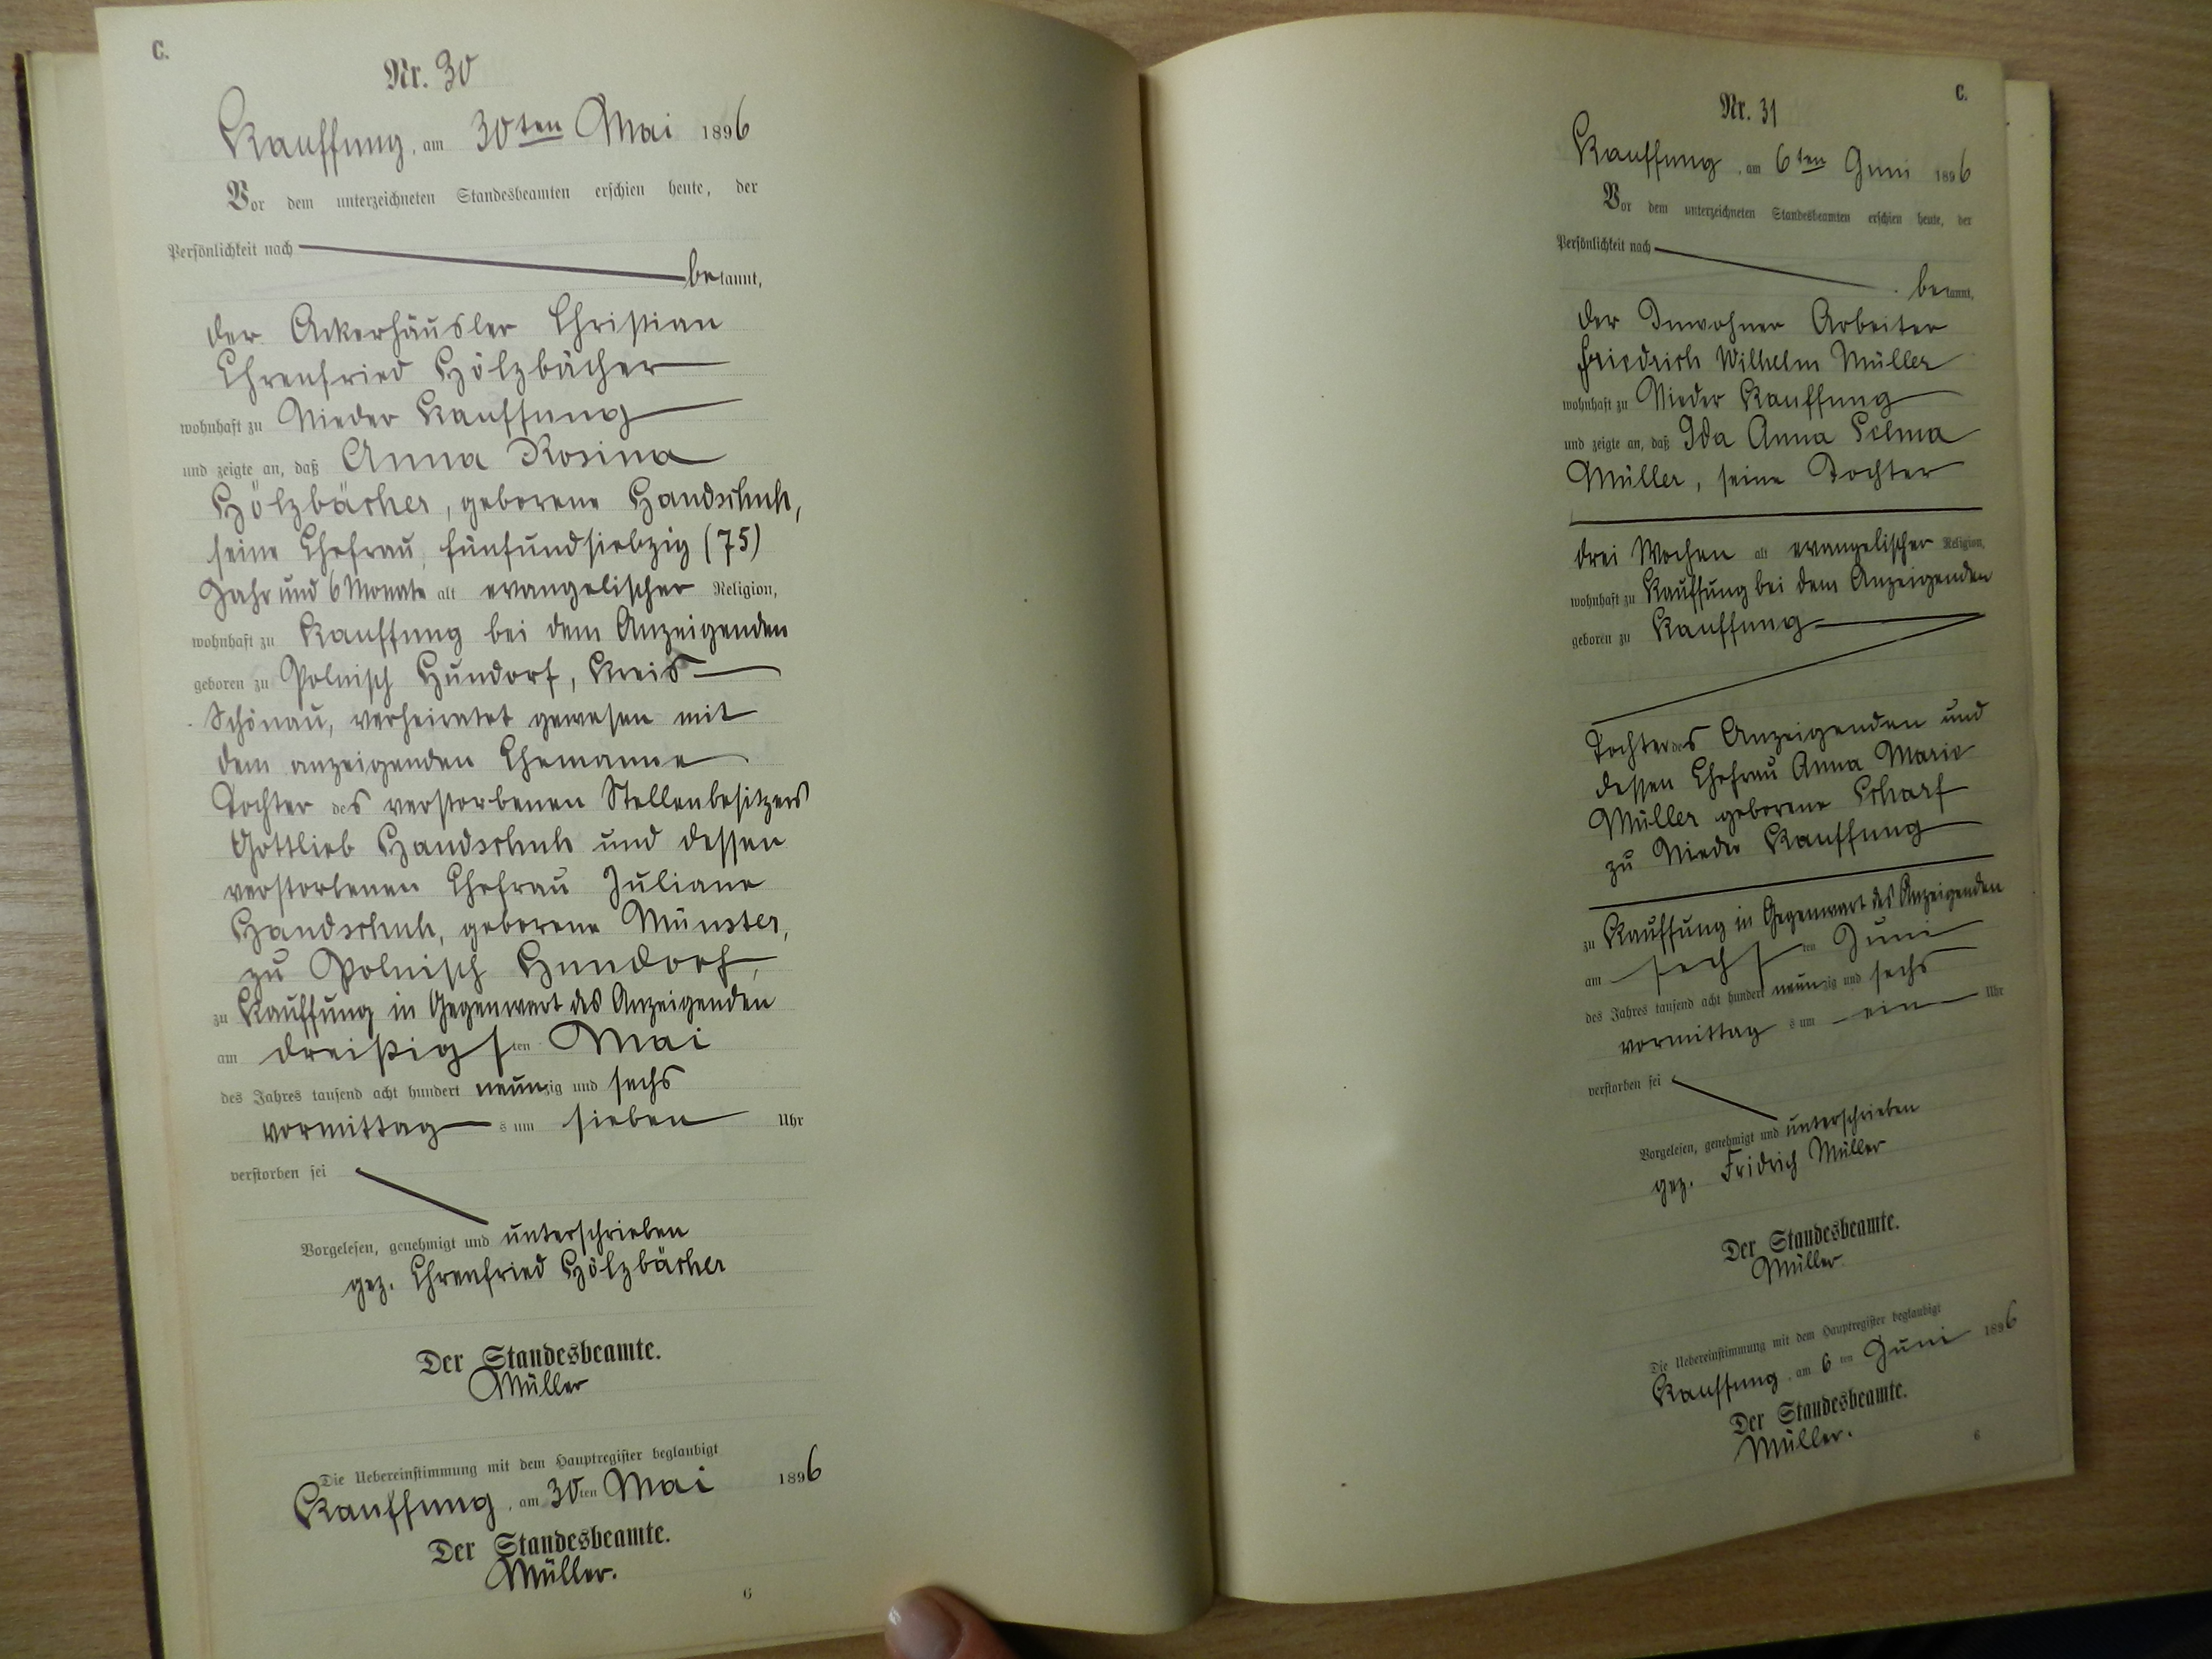 C.
Nr. 30
Kauffung, am 30ten Mai 1896
Vor dem unterzeichneten Standesbeamten erschien heute, der
Persönlichkeit nach
bekannt,
der Ackerhäusler Christian
Ehrenfried Hölzbächer
wohnhaft zu Nieder Kauffung
und zeigte an, daß Anna Rosina
Hölzbächer, geborene Handschuh,
seine Ehefrau, fünfundsiebzig (75)
Jahr und 6 Monate alt evangelischer Religion,
wohnhaft zu Kauffung bei dem Anzeigenden
geboren zu Polnisch Hundorf, Kreis
Schönau, verheiratet gewesen mit
dem anzeigenden Ehemanne
Tochter des verstorbenen Stellenbesitzers
Gottlieb Handschuh und dessen
verstorbenen Ehefrau Juliane
Handschuh, geborene Münster,
zu Polnisch Hundorf,
zu Kauffung in Gegenwart des Anzeigenden
am dreißigsten Mai
des Jahres tausend acht hundert neunzig und sechs
vormittags um sieben Uhr
verstorben sei
Vorgelesen, genehmigt und unterschrieben
gez. Ehrenfried Hölzbächer
Der Standesbeamte.
Müller
Die Uebereinstimmung mit dem Hauptregister beglaubigt
Kauffung, am 30ten Mai 1896
Der Standesbeamte.
Müller.
6
C.
Nr. 31
Kauffung, am 6ten Juni 1896
Vor dem unterzeichneten Standesbeamten erschien heute, der
Persönlichkeit nach
bekannt,
der Inwohner Arbeiter
Friedrich Wilhelm Müller
wohnhaft zu Nieder Kauffung
und zeigte an, daß Ida Anna Selma
Müller, seine Tochter
drei Wochen alt evangelischer Religion,
wohnhaft zu Kauffung bei dem Anzeigenden
geboren zu Kauffung
Tochter des Anzeigenden und
dessen Ehefrau Anna Marie
Müller geborene Scharf
zu Nieder Kauffung
zu Kauffung in Gegenwart des Anzeigenden
am sechsten Juni
des Jahres tausend acht hundert neunzig und sechs
vormittags um ein Uhr
verstorben sei
Vorgelesen, genehmigt und unterschrieben
gez. Fridrich Müller
Der Standesbeamte.
Müller
Die Uebereinstimmung mit dem Hauptregister beglaubigt
Kauffung, am 6ten Juni 1896
Der Standesbeamte.
Müller.
6